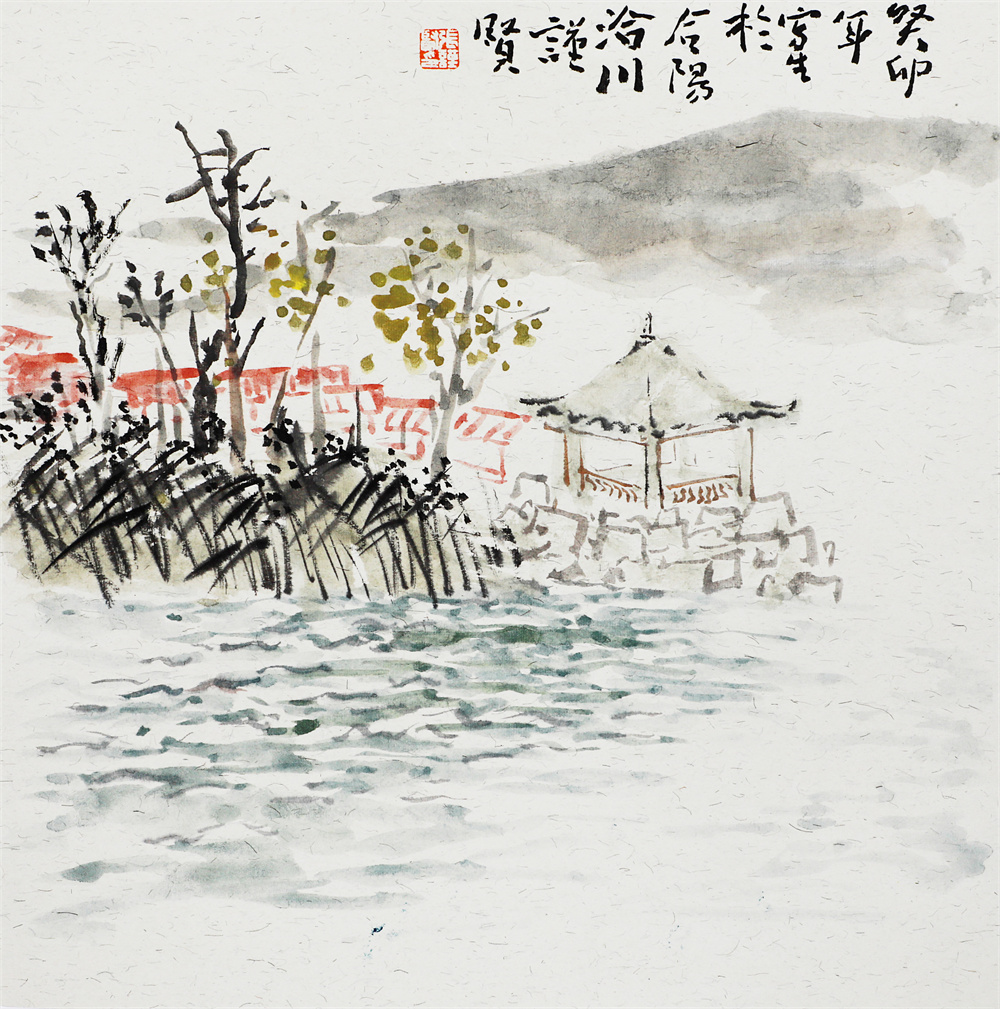 癸卯
年
寫生
於
合陽
洽川
謹
賢